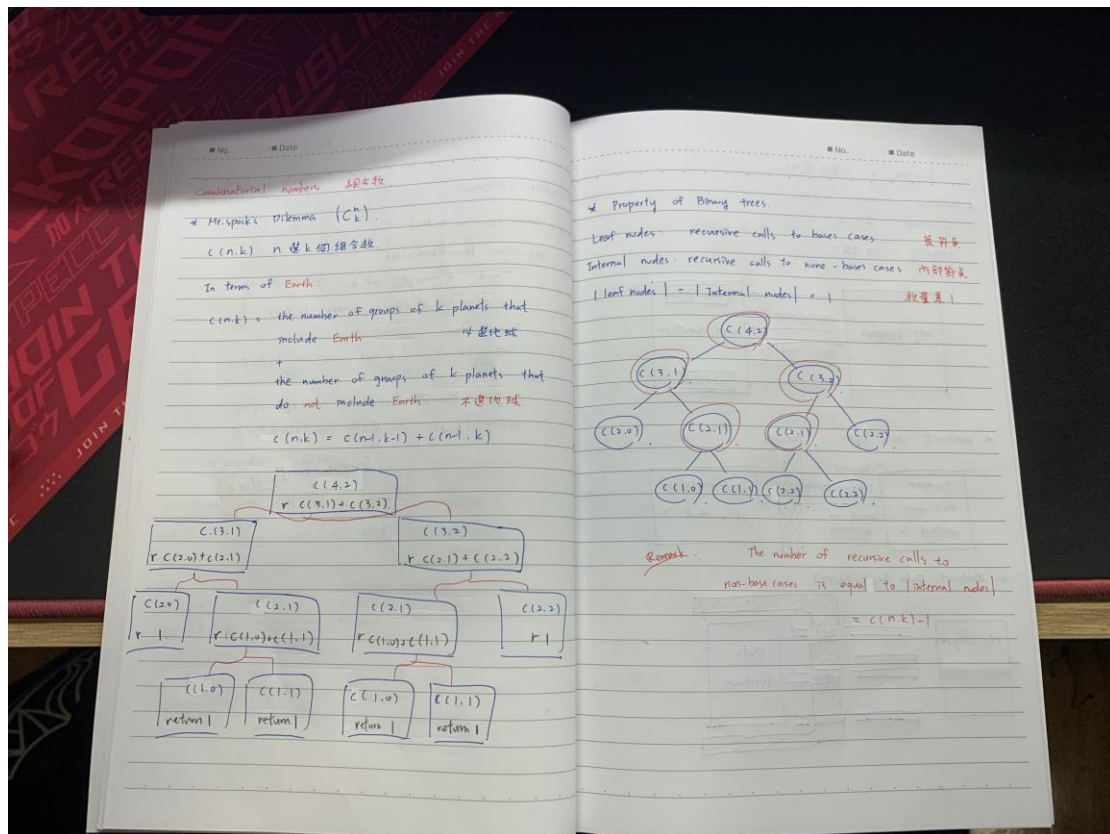 JOIN THE
加入
JOIN TH
OF
■ No. ■ Date
Combinatorial numbers 組合數
* Mr. spock's Dilemma (C^n_k).
C(n.k) n 選 k 個組合數.
In terms of Earth:
C(n.k) = the number of groups of k planets that
include Earth 選地球
+
the number of groups of k planets that
do not include Earth 不選地球
C(n.k) = C(n-1.k-1) + C(n-1.k)
C(4.2)
r C(3.1) + C(3.2)
C.(3.1) C(3.2)
r C(2.0)+C(2.1) r C(2.1)+C(2.2)
C(2.0) C(2.1) C(2.1) C(2.2)
r 1. r C(1.0)+C(1.1) r C(1.0)+C(1.1) r 1
C(1.0) C(1.1) C(1.0) C(1.1)
return 1 return 1 return 1 return 1
■ No. ■ Date
* Property of Binary trees.
Leaf nodes: recursive calls to bases cases 葉節點
Internal nodes: recursive calls to none-bases cases 內部節點
|leaf nodes| - |Internal nodes| = 1 數量差1
C(4.2)
C(3.1) C(3.2)
C(2.0) C(2.1) C(2.1) C(2.2)
C(1.0) C(1.1) C(2.2) C(2.2)
Remark: The number of recursive calls to
non-base cases is equal to |internal nodes|
= C(n.k)-1